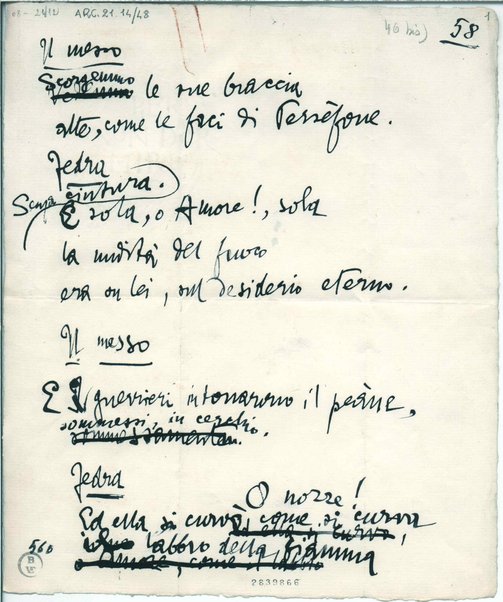 08-21/12 ARC.21.14/48 46 bis) 1
58
Il messo
Scorgemmo
le sue braccia
alte, come le faci di Persèfone.
Fedra
Senza cintura.
E sola, o Amore!, sola
la nudità del fuoco
era su lei, sul desiderio eterno.
Il messo
E I guerrieri intonarono il peàne,
sommessi, in cerchio.
sommessamente.
Fedra
O nozze!
Ed ella si curvò, come si curva
labbro della fiamma
Amore, come il
560
2839866